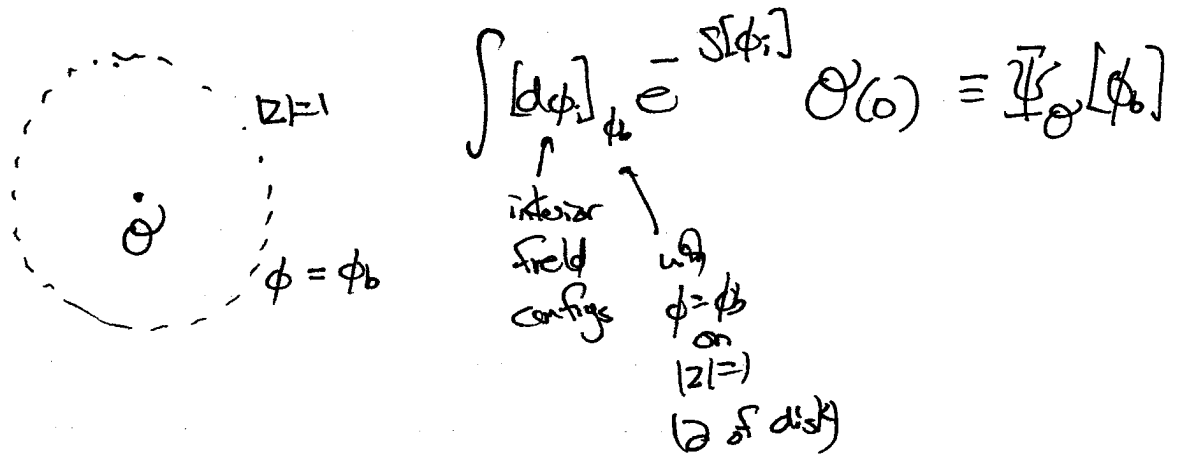 |z|=1
O
φ = φ_b
∫ [dφ_i]_{φ_b} e^{-S[φ_i]} O(0) ≡ Ψ_O[φ_b]
interior
field
configs
with
φ=φ_b
on
|z|=1
(∂ of disk)